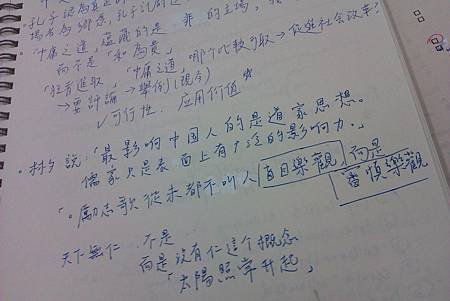 孔子認為真正的
場者為鄉愿,孔子討厭這
非的立場,
「中庸之道」強調的是
而不是「和為貴」
「狂者進取」,「中庸之道」,哪个比較可取→促進社会改革?
→要評論→舉例(視今)
✓可行性. 应用价值
·林夕說:「最影响中国人的是道家思想。
儒家只是表面上有广泛的影响力.」
·「励志歌從未都不叫人盲目樂觀,而是
審慎樂觀
天下無仁 不是
而是没有仁這个概念
「太陽照常升起」